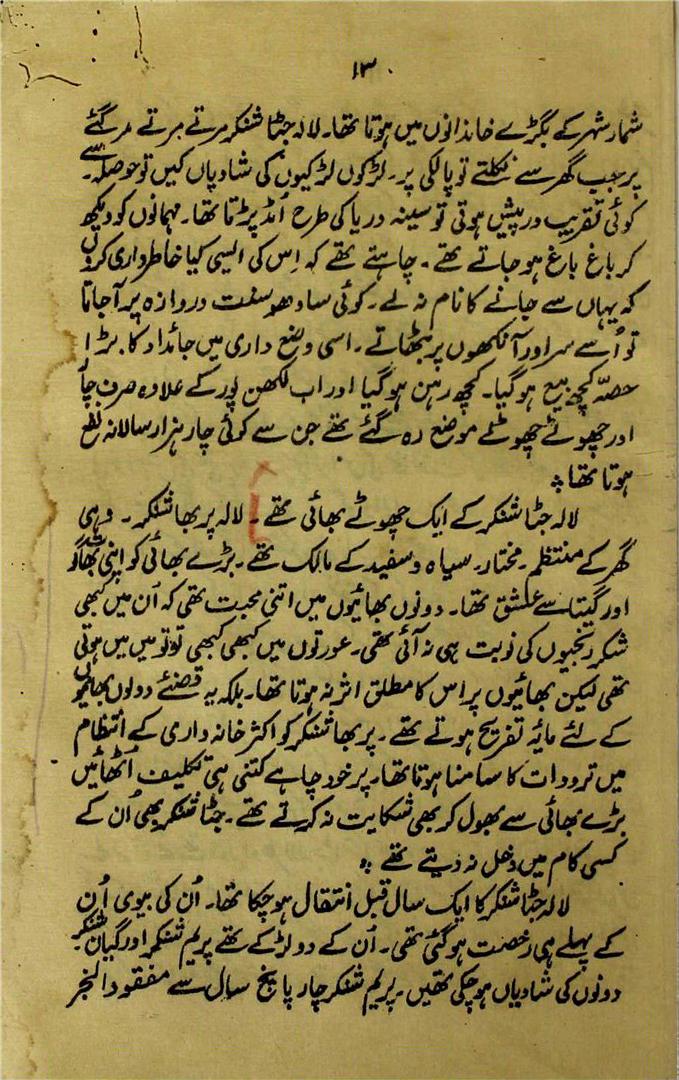 ۱۳
شمار شہر کے بگڑے خاندانوں میں ہوتا تھا۔ لالہ جٹا شنکر مرتے مرتے مر گئے
پر جب گھر سے نکلتے تو پالکی پر۔ لڑکوں لڑکیوں کی شادیاں کیں تو حوصلہ سے۔
کوئی تقریب در پیش ہوتی تو سینہ دریا کی طرح اُمڈ پڑتا تھا۔ مہمانوں کو دیکھ
کر باغ باغ ہو جاتے تھے۔ چاہتے تھے کہ اِس کی ایسی کیا خاطر داری کروں
کہ یہاں سے جانے کا نام نہ لے۔ کوئی سادھو سنت دروازہ پر آ جاتا
تو اُسے سر اور آنکھوں پر بٹھاتے۔ اسی وضع داری میں جائداد کا بڑا
حصّہ کچھ بیع ہو گیا۔ کچھ رہن ہو گیا اور اب لکھن پور کے علاوہ صرف چار
اور چھوٹے چھوٹے موضع رہ گئے تھے جن سے کوئی چار ہزار سالانہ نفع
ہوتا تھا۔
لالہ جٹا شنکر کے ایک چھوٹے بھائی تھے۔ لالہ پربھا شنکر۔ وہی
گھر کے منتظم۔ مختار۔ سیاہ و سفید کے مالک تھے۔ بڑے بھائی کو اپنی بھاگوت
اور گیتا سے عشق تھا۔ دونوں بھائیوں میں اتنی محبت تھی کہ اُن میں کبھی
شکر رنجیوں کی نوبت ہی نہ آئی تھی۔ عورتوں میں کبھی کبھی تو تو میں میں ہوتی
تھی لیکن بھائیوں پر اس کا مطلق اثر نہ ہوتا تھا۔ بلکہ یہ قضئے دونوں بھائیوں
کے لئے مایۂ تفریح ہوتے تھے۔ پربھا شنکر کو اکثر خانہ داری کے انتظام
میں ترددات کا سامنا ہوتا تھا۔ پر خود چاہے کتنی ہی تکلیف اُٹھائیں
بڑے بھائی سے بھول کر بھی شکایت نہ کرتے تھے۔ جٹا شنکر بھی اُن کے
کسی کام میں دخل نہ دیتے تھے۔
لالہ جٹا شنکر کا ایک سال قبل انتقال ہو چکا تھا۔ اُن کی بیوی اُن
کے پہلے ہی رخصت ہو گئی تھی۔ اُن کے دو لڑکے تھے پریم شنکر اور گیان شنکر
دونوں کی شادیاں ہو چکی تھیں۔ پریم شنکر چار پانچ سال سے مفقود الخبر